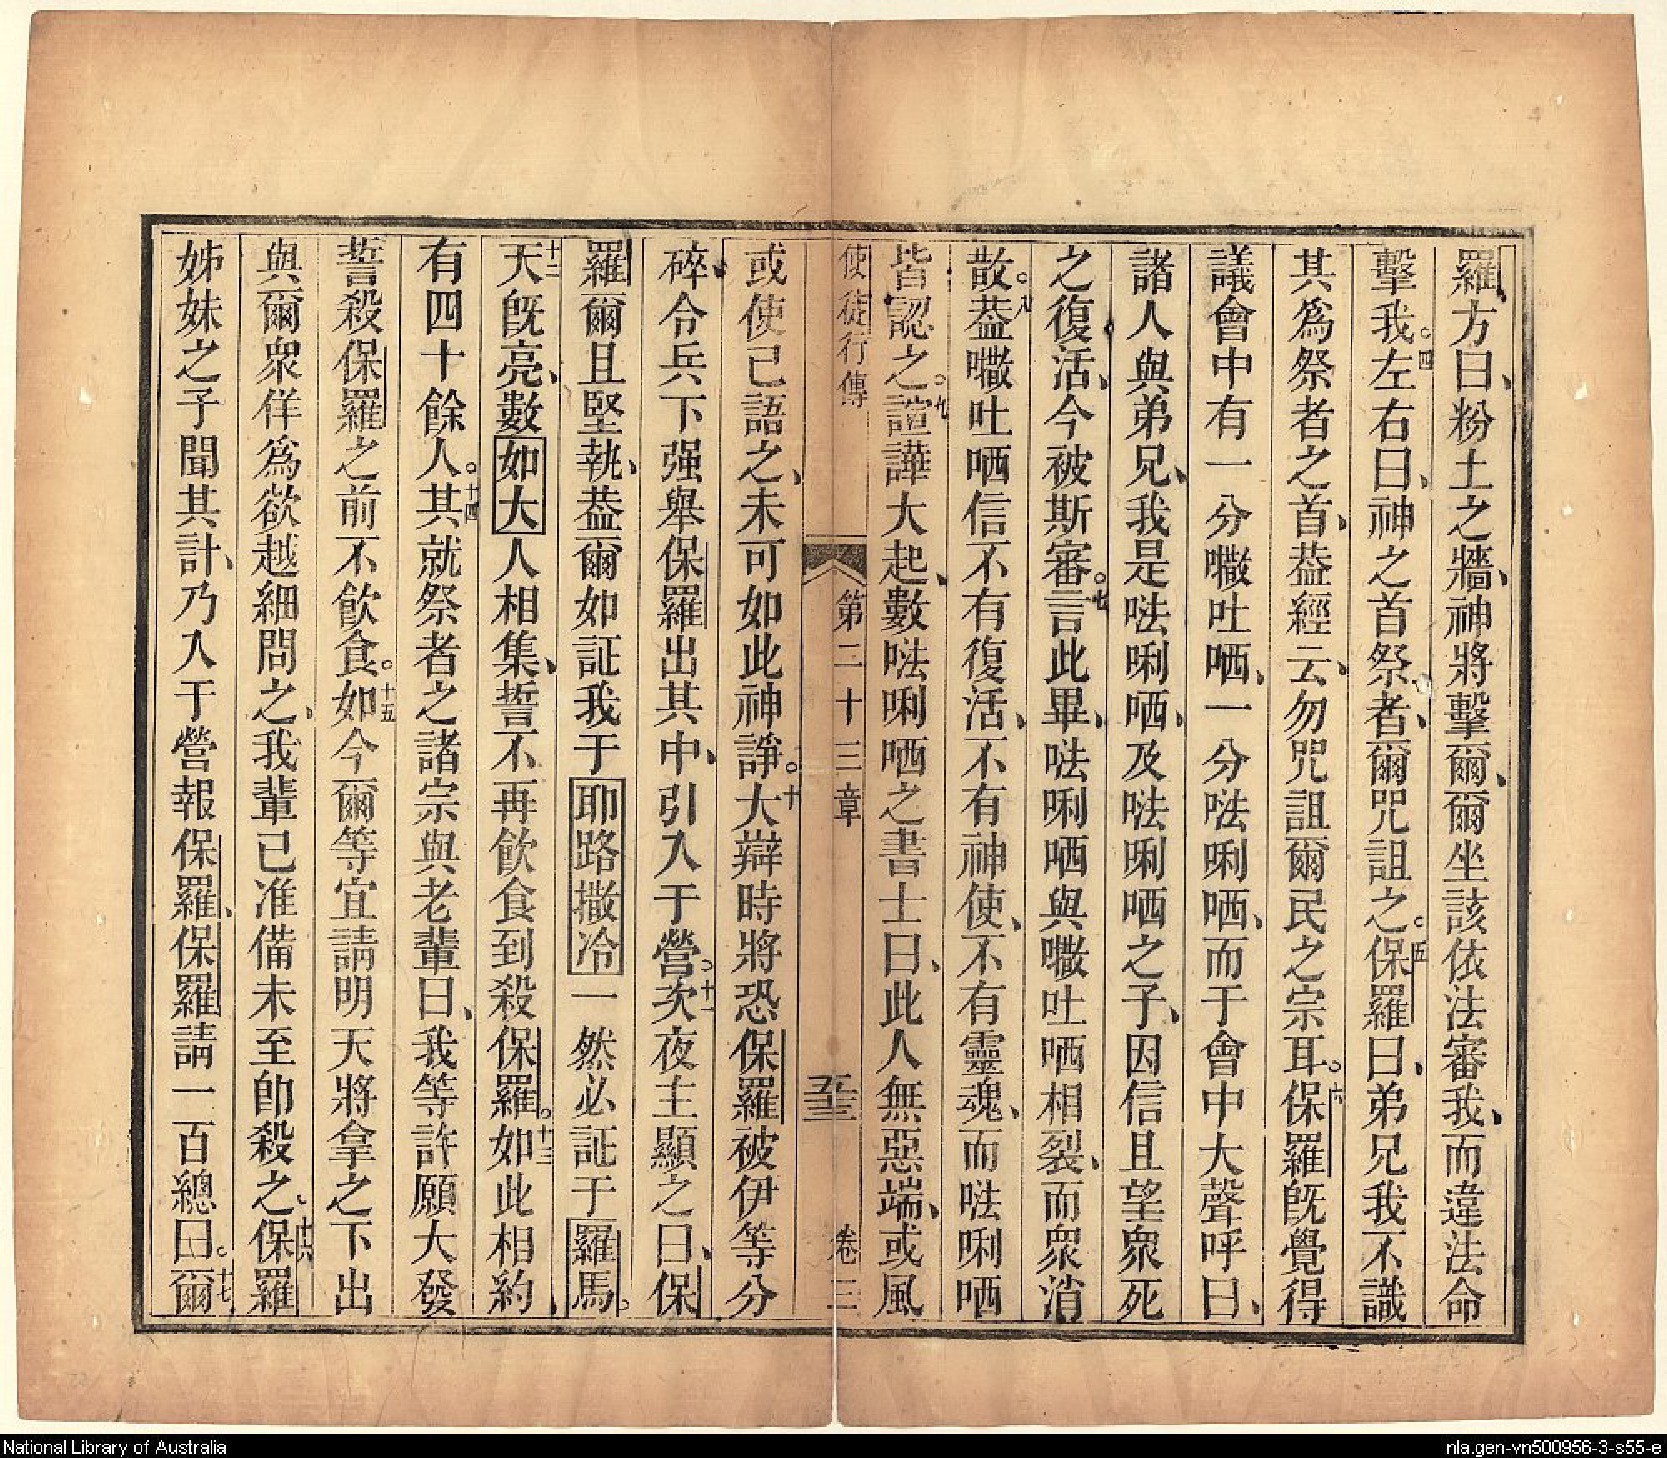 羅方曰、粉土之牆、神將擊爾、爾坐該依法審我、而違法命
擊我。四左右曰、神之首祭者、爾咒詛之。五保羅曰、弟兄我不識
其為祭者之首、葢經云、勿咒詛爾民之宗耳。六保羅旣覺得
議會中有一分㘔吐哂、一分㳒唎哂、而于會中大聲呼曰、
諸人與弟兄、我是㳒唎哂、及㳒唎哂之子、因信且望衆死
之復活、今被斯審。七言此畢、㳒唎哂與㘔吐哂相裂、而衆消
散。八葢㘔吐哂信不有復活、不有神使、不有靈魂、而㳒唎哂
皆認之。九諠譁大起、數㳒唎哂之書士曰、此人無惡端、或風
使徒行傳
第二十三章
五十三
卷三
或使已語之、未可如此神諍。十大辯時將恐保羅被伊等分
碎、令兵下强舉保羅出其中、引入于營。十一次夜主顯之曰、保
羅爾且堅執、葢爾如証我于耶路撒冷一然必証于羅馬。
十二天旣亮、數如大人相集、誓不再飮食到殺保羅。十三如此相約
有四十餘人。十四其就祭者之諸宗與老輩曰、我等許願大發
誓殺保羅之前不飮食。十五如今爾等宜請明天將拿之下出
與爾衆佯為欲越細問之、我輩已准備未至卽殺之。十六保羅
姊妹之子聞其計、乃入于營報保羅、保羅請一百總曰。十七爾
National Library of Australia
nla.gen-vn500956-3-s55-e